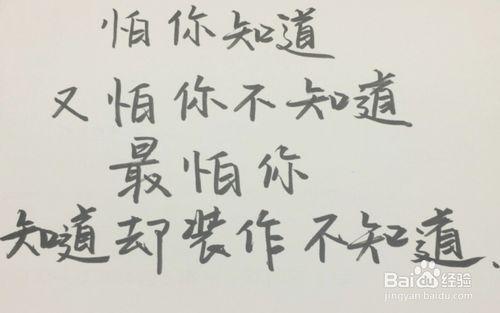 怕你知道
又怕你不知道
最怕你
知道却装作不知道、
Baidu经验
jingyan.baidu.com